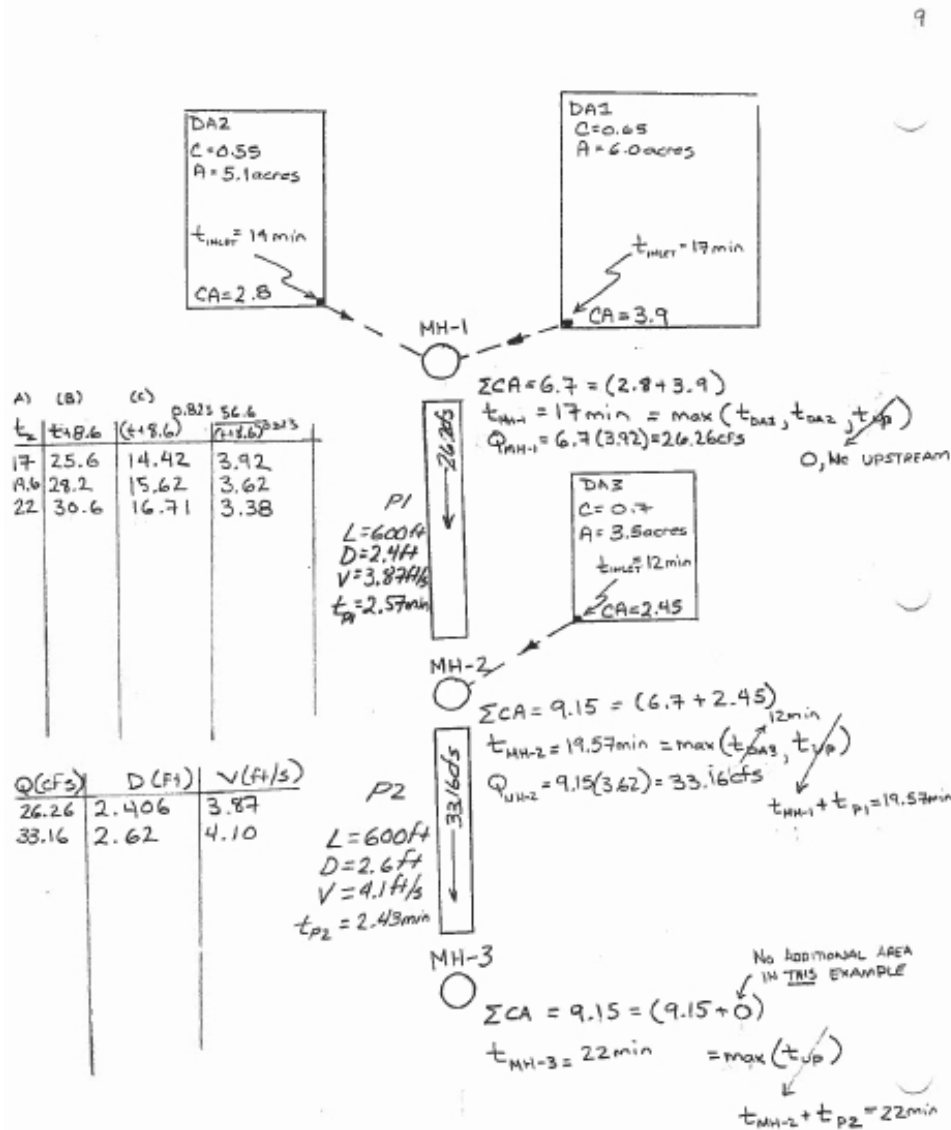 9
DA2
C=0.55
A=5.1acres
t_INLET = 14min
CA=2.8
DA1
C=0.65
A=6.0acres
t_INLET = 17min
CA=3.9
MH-1
ΣCA=6.7=(2.8+3.9)
t_MH-1 = 17min = max(t_DA1, t_DA2, t_up)
Q_MH-1 = 6.7(3.92)=26.26cfs
0, No UPSTREAM
A) (B) (C)
t_2 t+8.6 (t+8.6)^0.825 56.6/(t+8.6)
17 25.6 14.42 3.92
19.6 28.2 15.62 3.62
22 30.6 16.71 3.38
26.26cfs
P1
L=600ft
D=2.4ft
V=3.87ft/s
t_P1=2.57min
DA3
C=0.7
A=3.5acres
t_INLET=12min
CA=2.45
MH-2
ΣCA=9.15=(6.7+2.45)
12min
t_MH-2=19.57min=max(t_DA3, t_up)
Q_MH-2=9.15(3.62)=33.16cfs
t_MH-1+t_P1=19.57min
Q(cfs) D(Ft) V(ft/s)
26.26 2.406 3.87
33.16 2.62 4.10
33.16cfs
P2
L=600ft
D=2.6ft
V=4.1ft/s
t_P2=2.43min
MH-3
No ADDITIONAL AREA
IN THIS EXAMPLE
ΣCA = 9.15=(9.15+0)
t_MH-3=22min =max(t_up)
t_MH-2+t_P2=22min